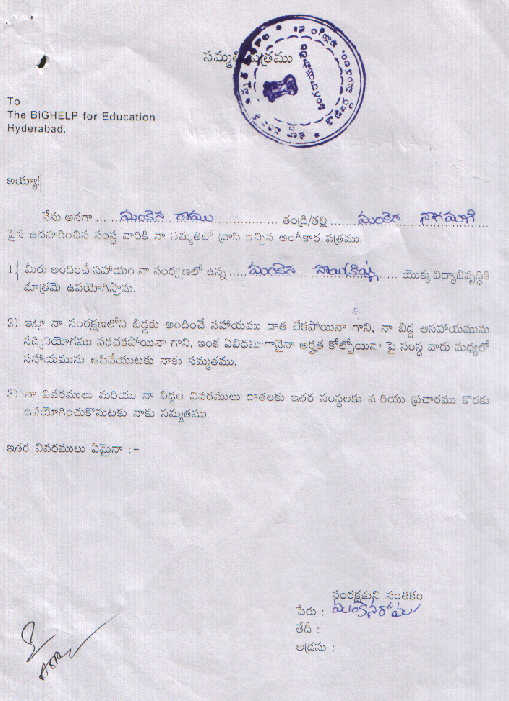 సమ్మతి పత్రము
To
The BIGHELP for Education
Hyderabad.
అయ్యా!
నేను అనగా ..... రాము ..... తండ్రి/తల్లి .....
పైన ఉదహరించిన సంస్థ వారికి నా సమ్మతితో వ్రాసి ఇచ్చిన అంగీకార పత్రము.
1) మీరు అందించే సహాయం నా సంరక్షణలో ఉన్న ..... యొక్క విద్యాభివృద్ధికి
మాత్రమే ఉపయోగిస్తాను.
2) ఇట్లా నా సంరక్షణలోని బిడ్డకు అందించే సహాయము దాత లేకపోయినా గాని, నా బిడ్డ ఆసహాయమును
సద్వినియోగము పరచకపోయినా గాని, ఇంకా ఏవిధముగానైనా అర్హత కోల్పోయినా పై సంస్థ వారు మధ్యలో
సహాయమును ఆపివేయుటకు నాకు సమ్మతము.
3) నా వివరములు మరియు నా బిడ్డల వివరములు దాతలకు ఇతర సంస్థలకు మరియు ప్రచారము కొరకు
ఉపయోగించుకొనుటకు నాకు సమ్మతము
ఇతర వివరములు ఏమైనా :-
సంరక్షకుని సంతకం
పేరు :
తేదీ :
అడ్రసు :